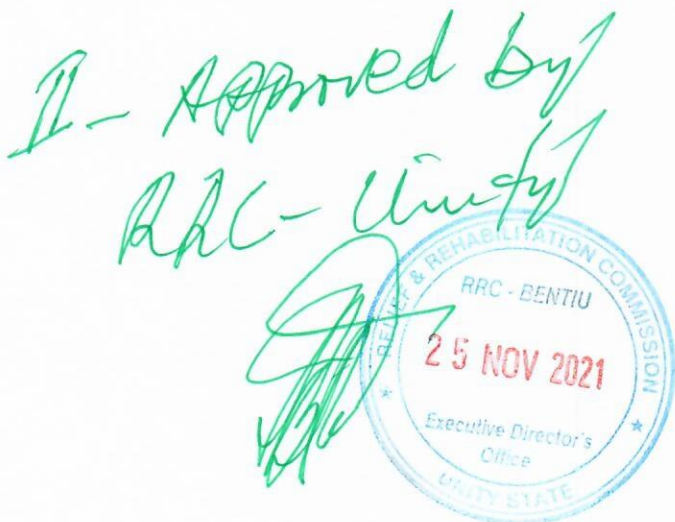 II - Approved by
RRC - Unity
RELIEF & REHABILITATION COMMISSION
RRC - BENTIU
25 NOV 2021
Executive Director's
Office
UNITY STATE